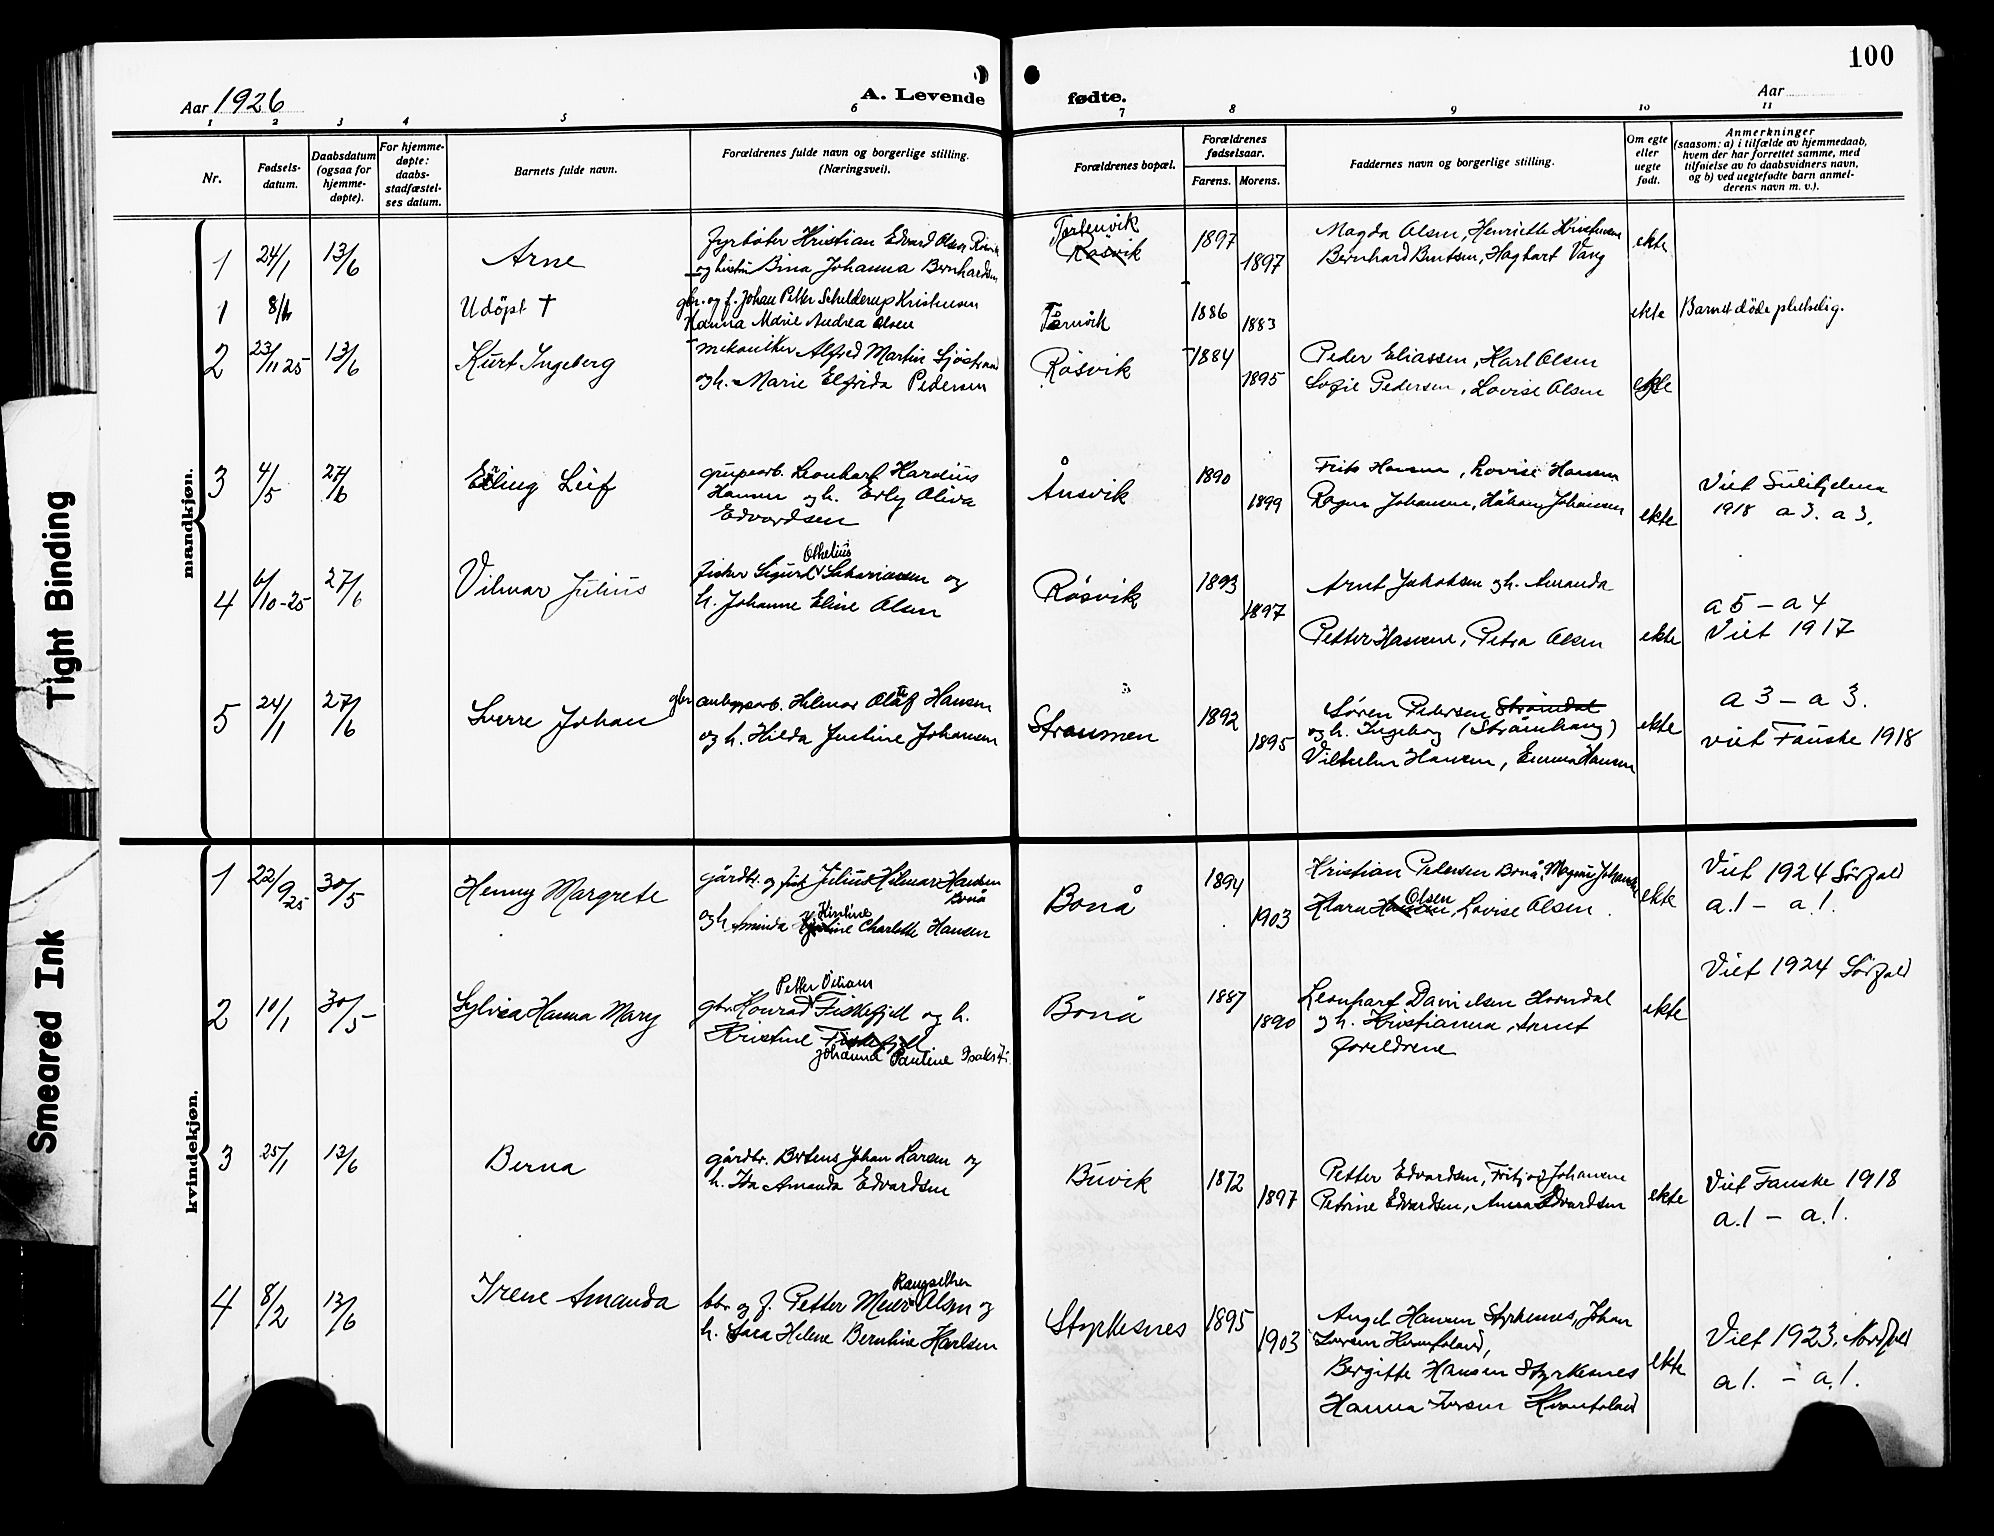 100
Aar 1926
A. Levende
fødte.
Aar
1 2 3 4 5 6 7 8 9 10 11
Nr.
Fødsels-
datum.
Daabsdatum
(ogsaa for
hjemme-
døpte).
For hjemme-
døpte:
daabs-
stadfæstel-
ses datum.
Barnets fulde navn.
Forældrenes fulde navn og borgerlige stilling.
(Næringsvei).
Forældrenes bopæl.
Forældrenes
fødselsaar.
Farens. Morens.
Faddernes navn og borgerlige stilling.
Om egte
eller
uegte
født.
Anmerkninger
(saasom: a) i tilfælde av hjemmedaab,
hvem der har forrettet samme, med
tilføielse av to daabsvidners navn,
og b) ved uegtefødte barn anmel-
derens navn m. v.).
mandkjøn.
1 24/1 13/6 Arne
Fyrbøter Kristian Edvard Olsen Røsvik
og hustru Bina Johanna Bernhardsen
Røsvik
1897
1897
Magda Olsen, Henriette Kristensen
Bernhard Bentsen, Hagbart Vang
ekte
1 Udöpt †
gbr. og f. Johan Petter Schelderup Kristensen
Hanna Marie Andrea Olsen
Tårnvik
1886
1883
ekte
Barnet döde plutselig.
2 23/11 25 13/6 Kurt Ingeberg
mekaniker Alfred Martin Sjöstrand
og h. Marie Elfrida Pedersen
Røsvik
1884
1895
Peder Eliassen, Karl Olsen
Sofie Pedersen, Lovise Olsen
ekte
3 4/5 27/6 Erling Leif
grupearb. Leonhart Harelius
Hansen og h. Erly Oliva
Edvardsen
Ånsvik
1890
1899
Frits Hansen, Lovise Hansen
Ragna Johansen, Håkon Johansen
ekte
Viet Sulitjelma
1918 a 3. a 3.
4 6/10-25 27/6 Vilmar Julius
Othelius
fisker Sigurd Sakariassen og
h. Johanne Eline Olsen
Røsvik
1893
1897
Arnt Jakobsen og h. Amanda
Petter Hansen, Petra Olsen
ekte
a 5 – a 4
Viet 1917
5 24/1 27/6 Sverre Johan
gbr anleggsarb. Hilmar Olaf Hansen
og h. Hilda Justine Johansen
Straumen
1892
1895
Søren Pedersen Strømdal
og h. Ingeborg (Strømhaug)
Vilhelm Hansen, Emma Hansen
ekte
a 3 – a 3.
viet Fauske 1918
kvindekjøn.
1 22/9 25 30/5 Henny Margrete
gårdbr. og fisk Julius Hilmar Hansen
Bonå
og h. Aminda Kirstine Charlotte Hansen
Bonå
1894
1903
Kristian Pedersen Bonå, Magnus Johansen
Klara Hansen Olsen, Lovise Olsen.
ekte
Viet 1924 Sørfold
a.1 – a.1.
2 10/1 30/5 Sylvia Hanna Mary
Petter Viliam
gbr. Konrad Fiskefjell og h.
Kristine Fiskefjell
Johanna Pauline
Bonå
1887
1890
Leonhart Danielsen Horndal
og h. Kristianna, samt
foreldrene
ekte
Viet 1924 Sørfold
3 25/1 13/6 Berna
gårdbr. Berteus Johan Larsen og
h. Ida Amanda Edvardsen
Buvik
1872
1897
Petter Edvardsen, Fritjof Johansen
Petrine Edvardsen, Anna Edvardsen
ekte
Viet Fauske 1918
a.1 – a.1.
4 8/2 13/6 Irene Amanda
bbr og f. Petter Meier Olsen og
h. Sara Helene Bernhine Karlsen
Styrkesnes
1895
1903
Angel Hansen Styrkesnes, Johan
Iversen Kvantoland,
Bergitte Hansen Styrkesnes
Hanna Iversen Kvantoland
ekte
Viet 1923. Nordfold
a 1. – a.1.
Tight Binding
Smeared Ink